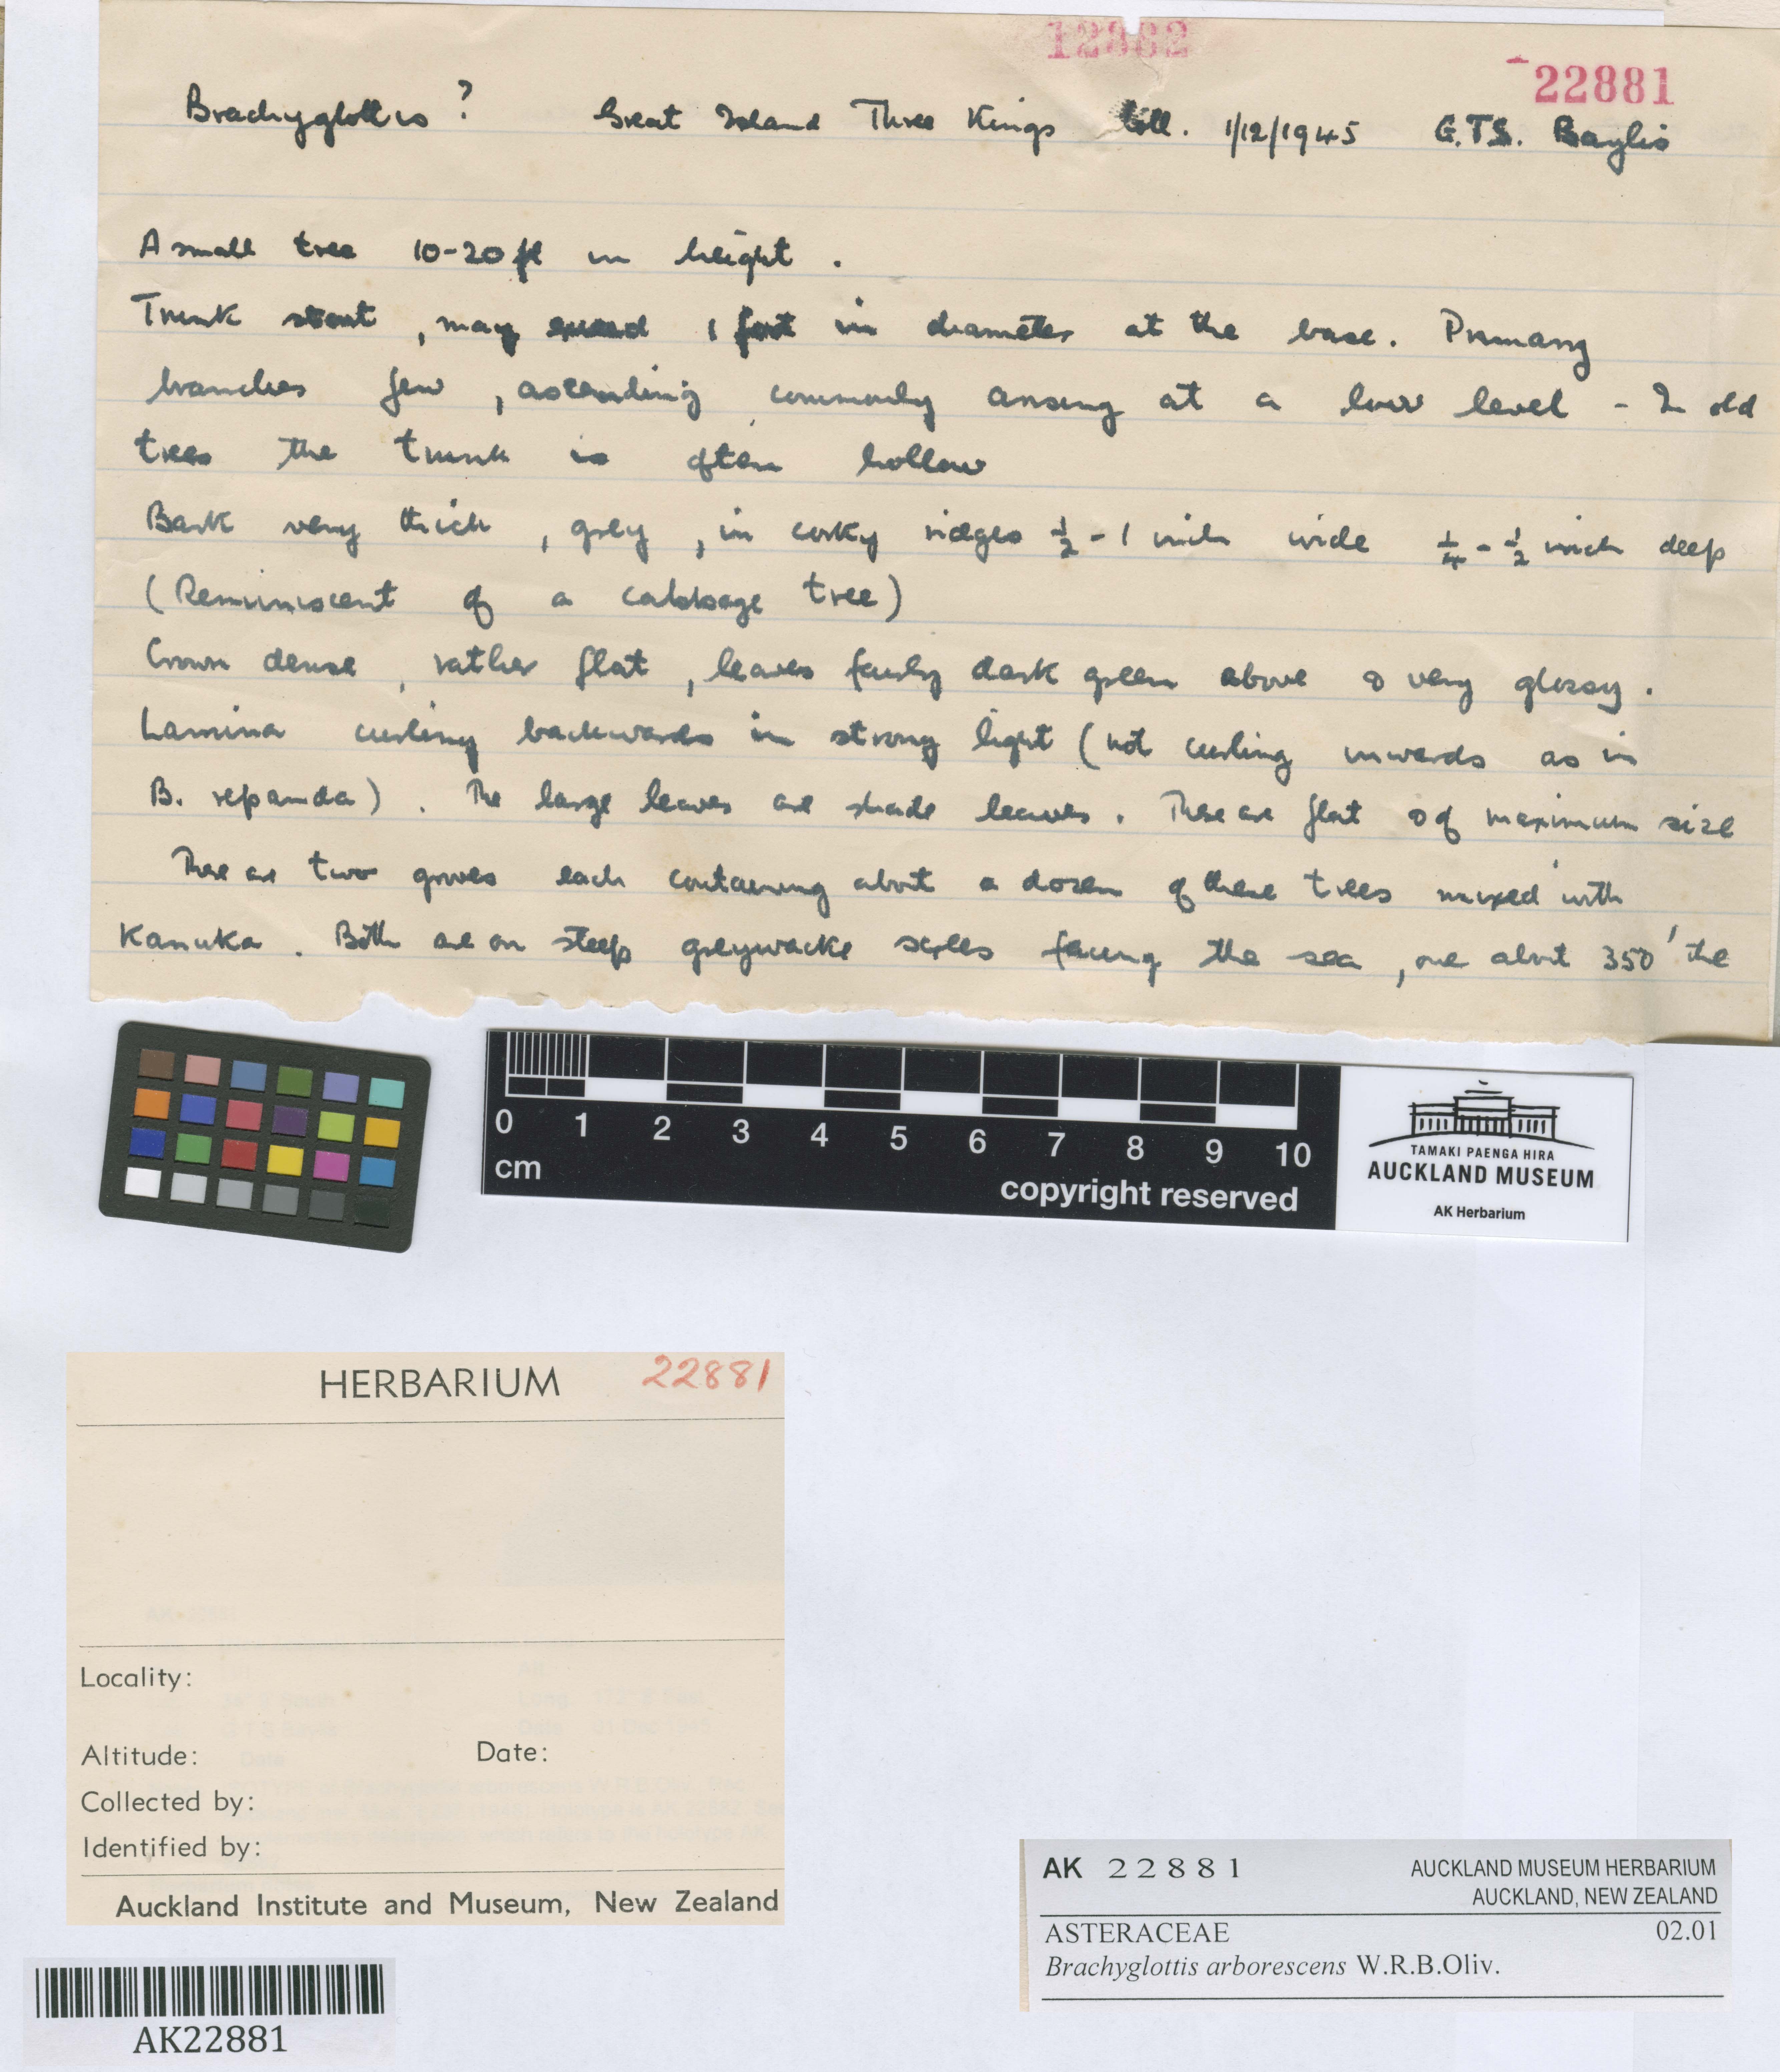 12882
22881
Brachyglottis ? Great Island Three Kings Coll. 1/12/1945 G.T.S. Baylis
A small tree 10-20 ft in height .
Trunk stout , may exceed 1 foot in diameter at the base . Primary
branches few , ascending commonly arising at a low level - In old
trees the trunk is often hollow
Bark very thick , grey , in corky ridges ½ - 1 inch wide ¼ - ½ inch deep
( Reminiscent of a cabbage tree )
Crown dense , rather flat , leaves fairly dark green above & very glossy .
Lamina curling backwards in strong light ( not curling inwards as in
B. repanda ) . The large leaves are shade leaves . These are flat & of maximum size
There are two groves each containing about a dozen of these trees mixed with
Kanuka . Both are on steep greywacke screes facing the sea , one about 350' the
0 1 2 3 4 5 6 7 8 9 10
cm
copyright reserved
TAMAKI PAENGA HIRA
AUCKLAND MUSEUM
AK Herbarium
HERBARIUM 22881
Locality:
Altitude: Date:
Collected by:
Identified by:
Auckland Institute and Museum, New Zealand
AK 22881 AUCKLAND MUSEUM HERBARIUM
AUCKLAND, NEW ZEALAND
ASTERACEAE 02.01
Brachyglottis arborescens W.R.B.Oliv.
AK22881